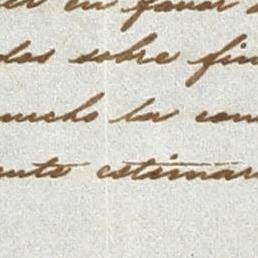 er en favor
das sobre fin
mucho la con
ente estimar